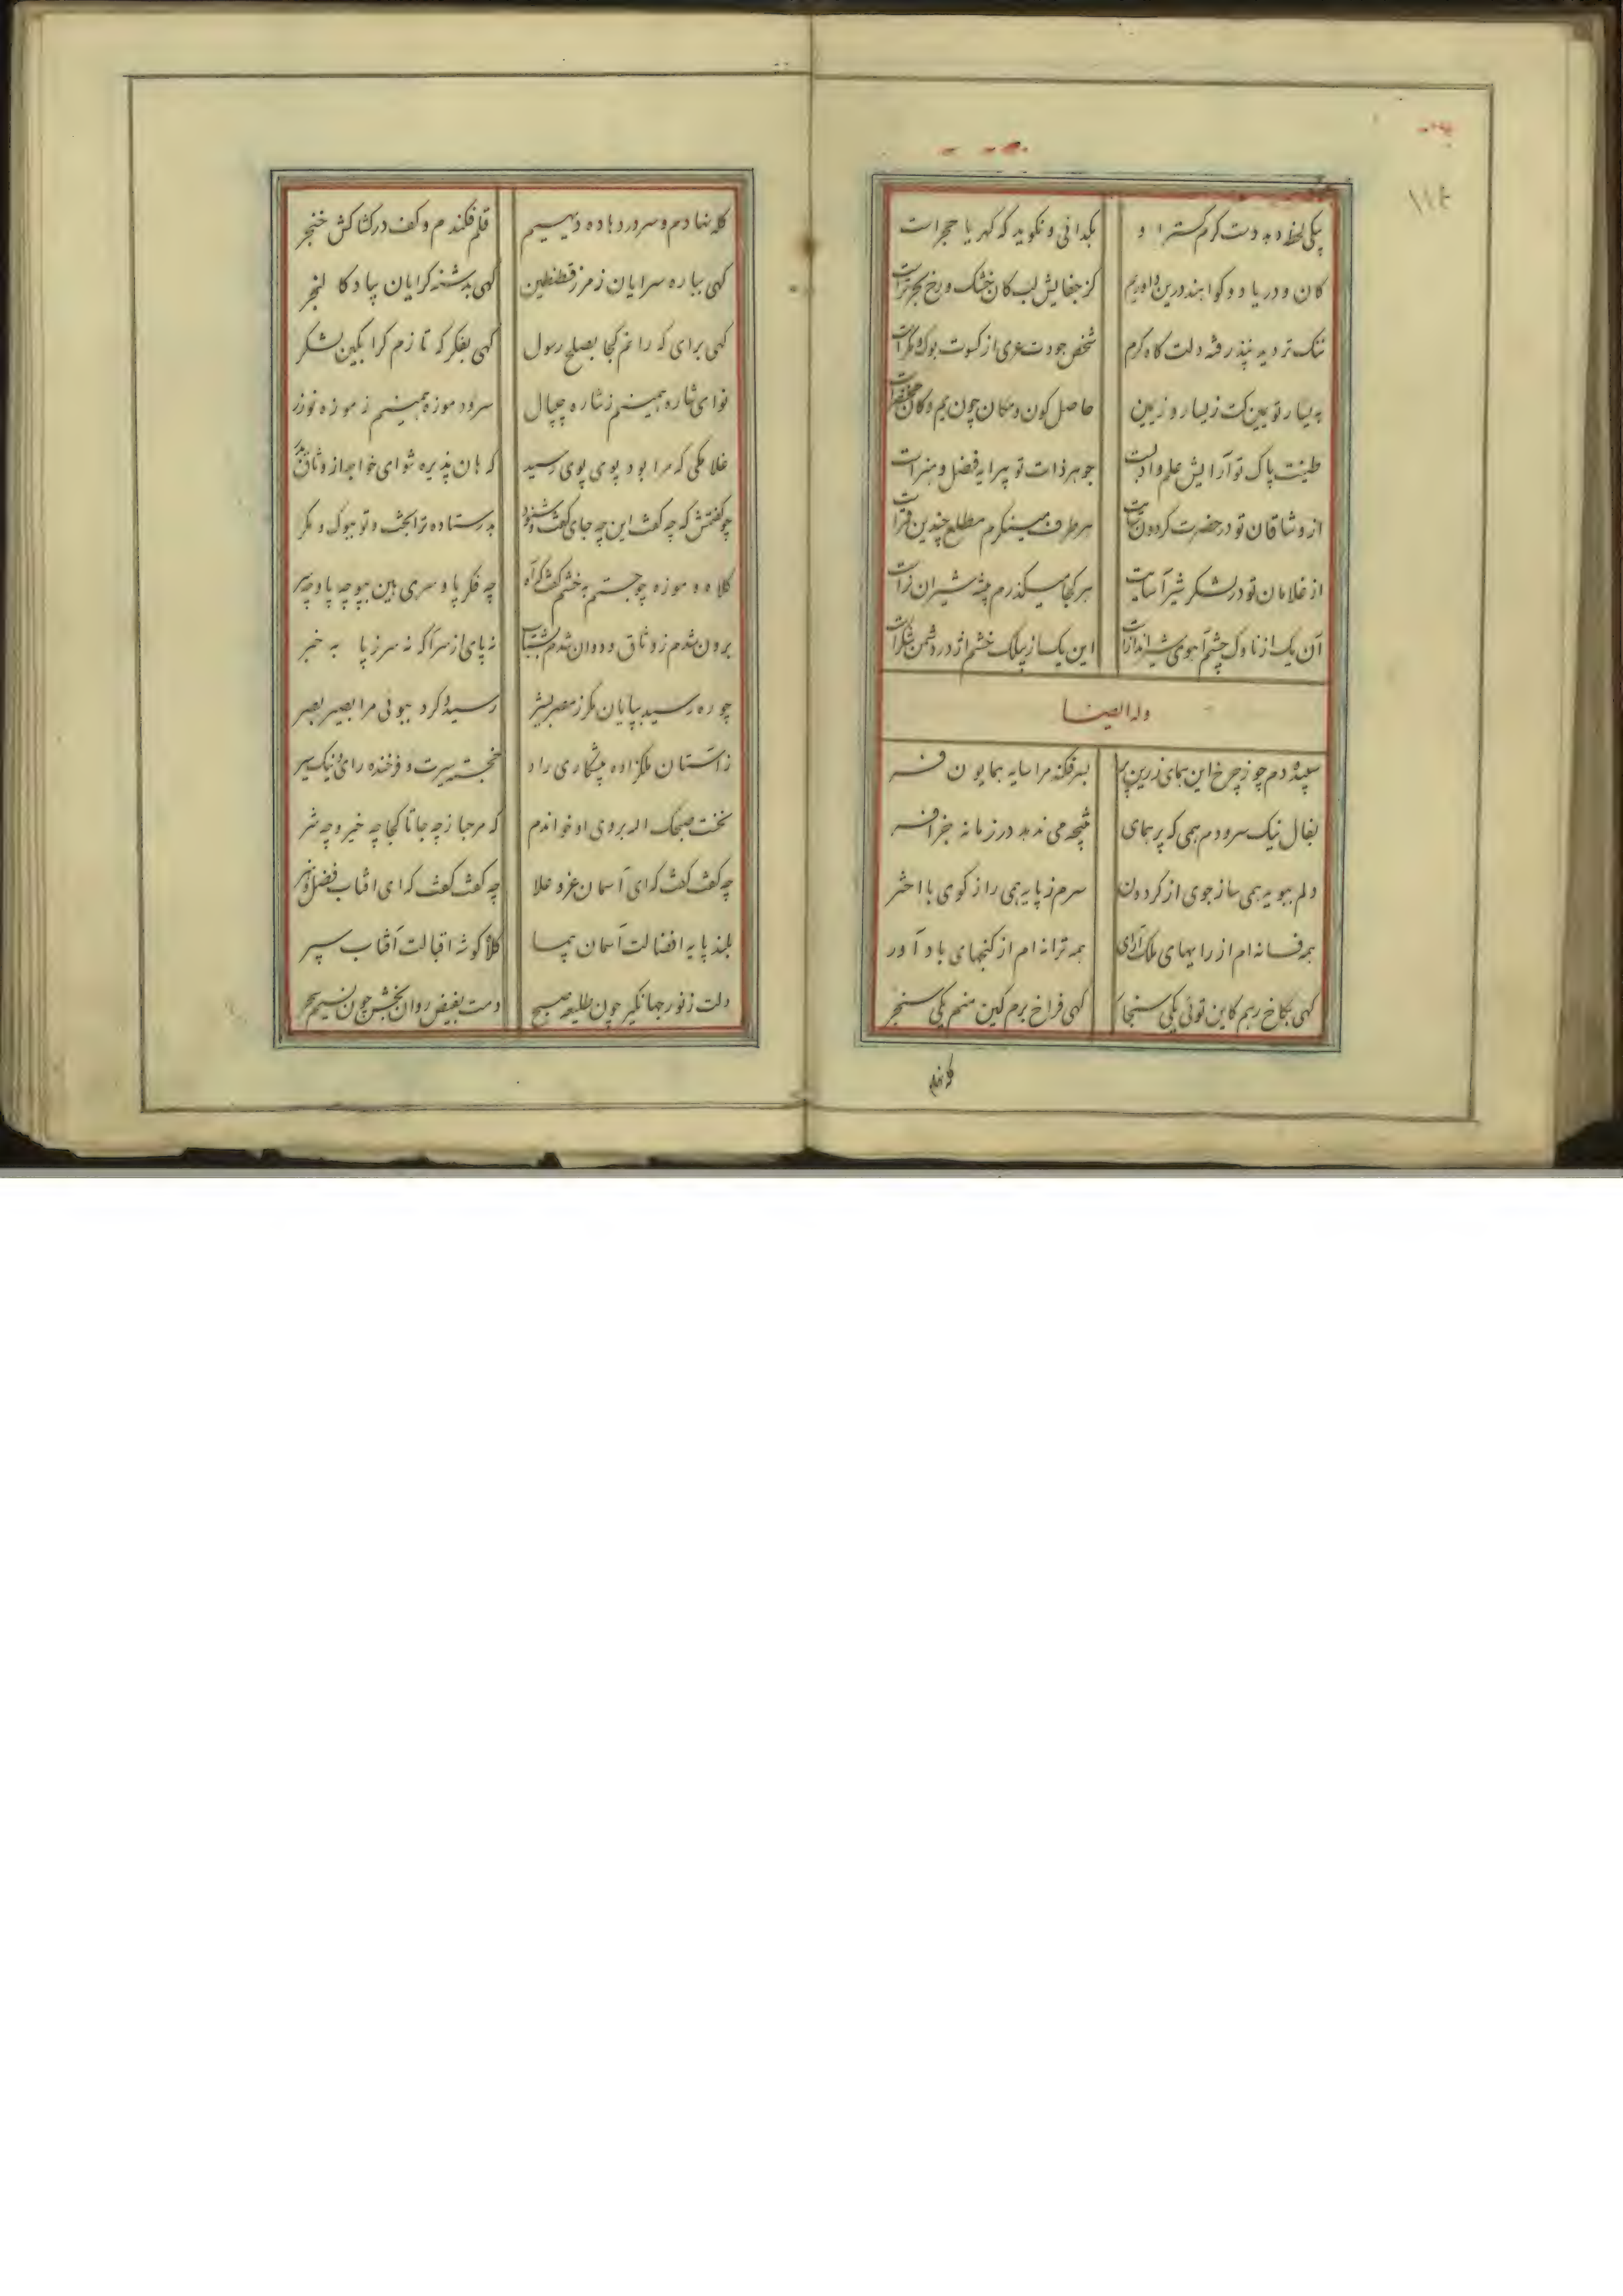 ۱۱۴
بیکی لحظه دهد دست کرم گستر او بگدائی و نگوید که گهر یا حجر است
کان و دریا دو گوا بند درین داوریم کز جفایش لب کان خشک و رخ بحر تر است
تنگ تر دیه نپذرفته دلت گاه کرم شخص جودت عری از کسوت بوک و مگر است
به یسار تو یمین کت ز یسار و ز یمین حاصل کون و مکان چون یم و کان
طینت پاک تو آرایش علم و ادبست جوهر ذات تو پیرایه فضل و هنر است
از وشاقان تو در حضرت گردون سات هر طرف مینگرم مطلع چندین قمر است
از غلامان تو در لشکر شیر آسایت هر کجا میگذرم بیشه شیران نر است
آن یک از ناوک چشم آهوی شیر انداز است این یک از پیلک خشم اژدر دشمن شکر است
وله ایضا
سپیده دم چو ز چرخ این همای زرین پر بسر فکند مرا سایه همایون فر
بفال نیک سرودم همی که پر همای نتیجه می ندهد در زمانه جز افسر
دلم بپویه همی ساز جوی از گردون سرم ز پایه همی راز گوی با اختر
همه فسانه ام از رایهای ملک آرای همه ترانه ام از گنجهای باد آور
گهی بکاخ رهم کاین توئی یکی سنجا گهی فراخ برم کین منم یکی سنجر
کله نهادم
کله نهادم و سر در هاده دیهیم قلم فکندم و کف در کشاکش خنجر
گهی بباره سرایان ز مرز قسطنطین گهی بدشنه گرایان بیاد کالنجر
گهی برای که رانم کجا بصلح رسول گهی بفکر که تازم کرا بکین لشکر
نوای شاره همینم ز شاره چیپال سرود موزه همینم ز موزه نوذر
غلامکی که مرا بود پوی پوی رسید که هان پذیره شو ای خواجه از وثاق بدر
چو گفتمش که چه گفت این چه جای گفت و شنود بدر ستاده ترا بخت و تو ببوک و مگر
کلاه و موزه چو جستم بخشم گفت که آه چه فکر پا و سری بین ببو چه پا و چه سر
برون شدم ز وثاق و دوان شدم بشتاب نه پای از سر آگه نه سر ز پا به خبر
چو ره رسید بپایان مگر ز مصر بشیر رسید و کرد ببوئی مرا بصیر بصر
ز آستان ملکزاده پیشکاری راد خجسته سیرت و فرخنده رای و نیک سیر
نخست صبحک الله بروی او خواندم که مرحبا ز چه جا تا کجا چه خیر و چه شر
چه گفت گفت که ای آسمان عز و علا چه گفت گفت که ای افتاب فضل و هنر
بلند پایه افضالت آسمان پیما کلاه گوشه اقبالت آفتاب سپر
دلت ز نور جهانگیر چون طلیعه صبح دمت بفیض روان بخش چون نسیم سحر